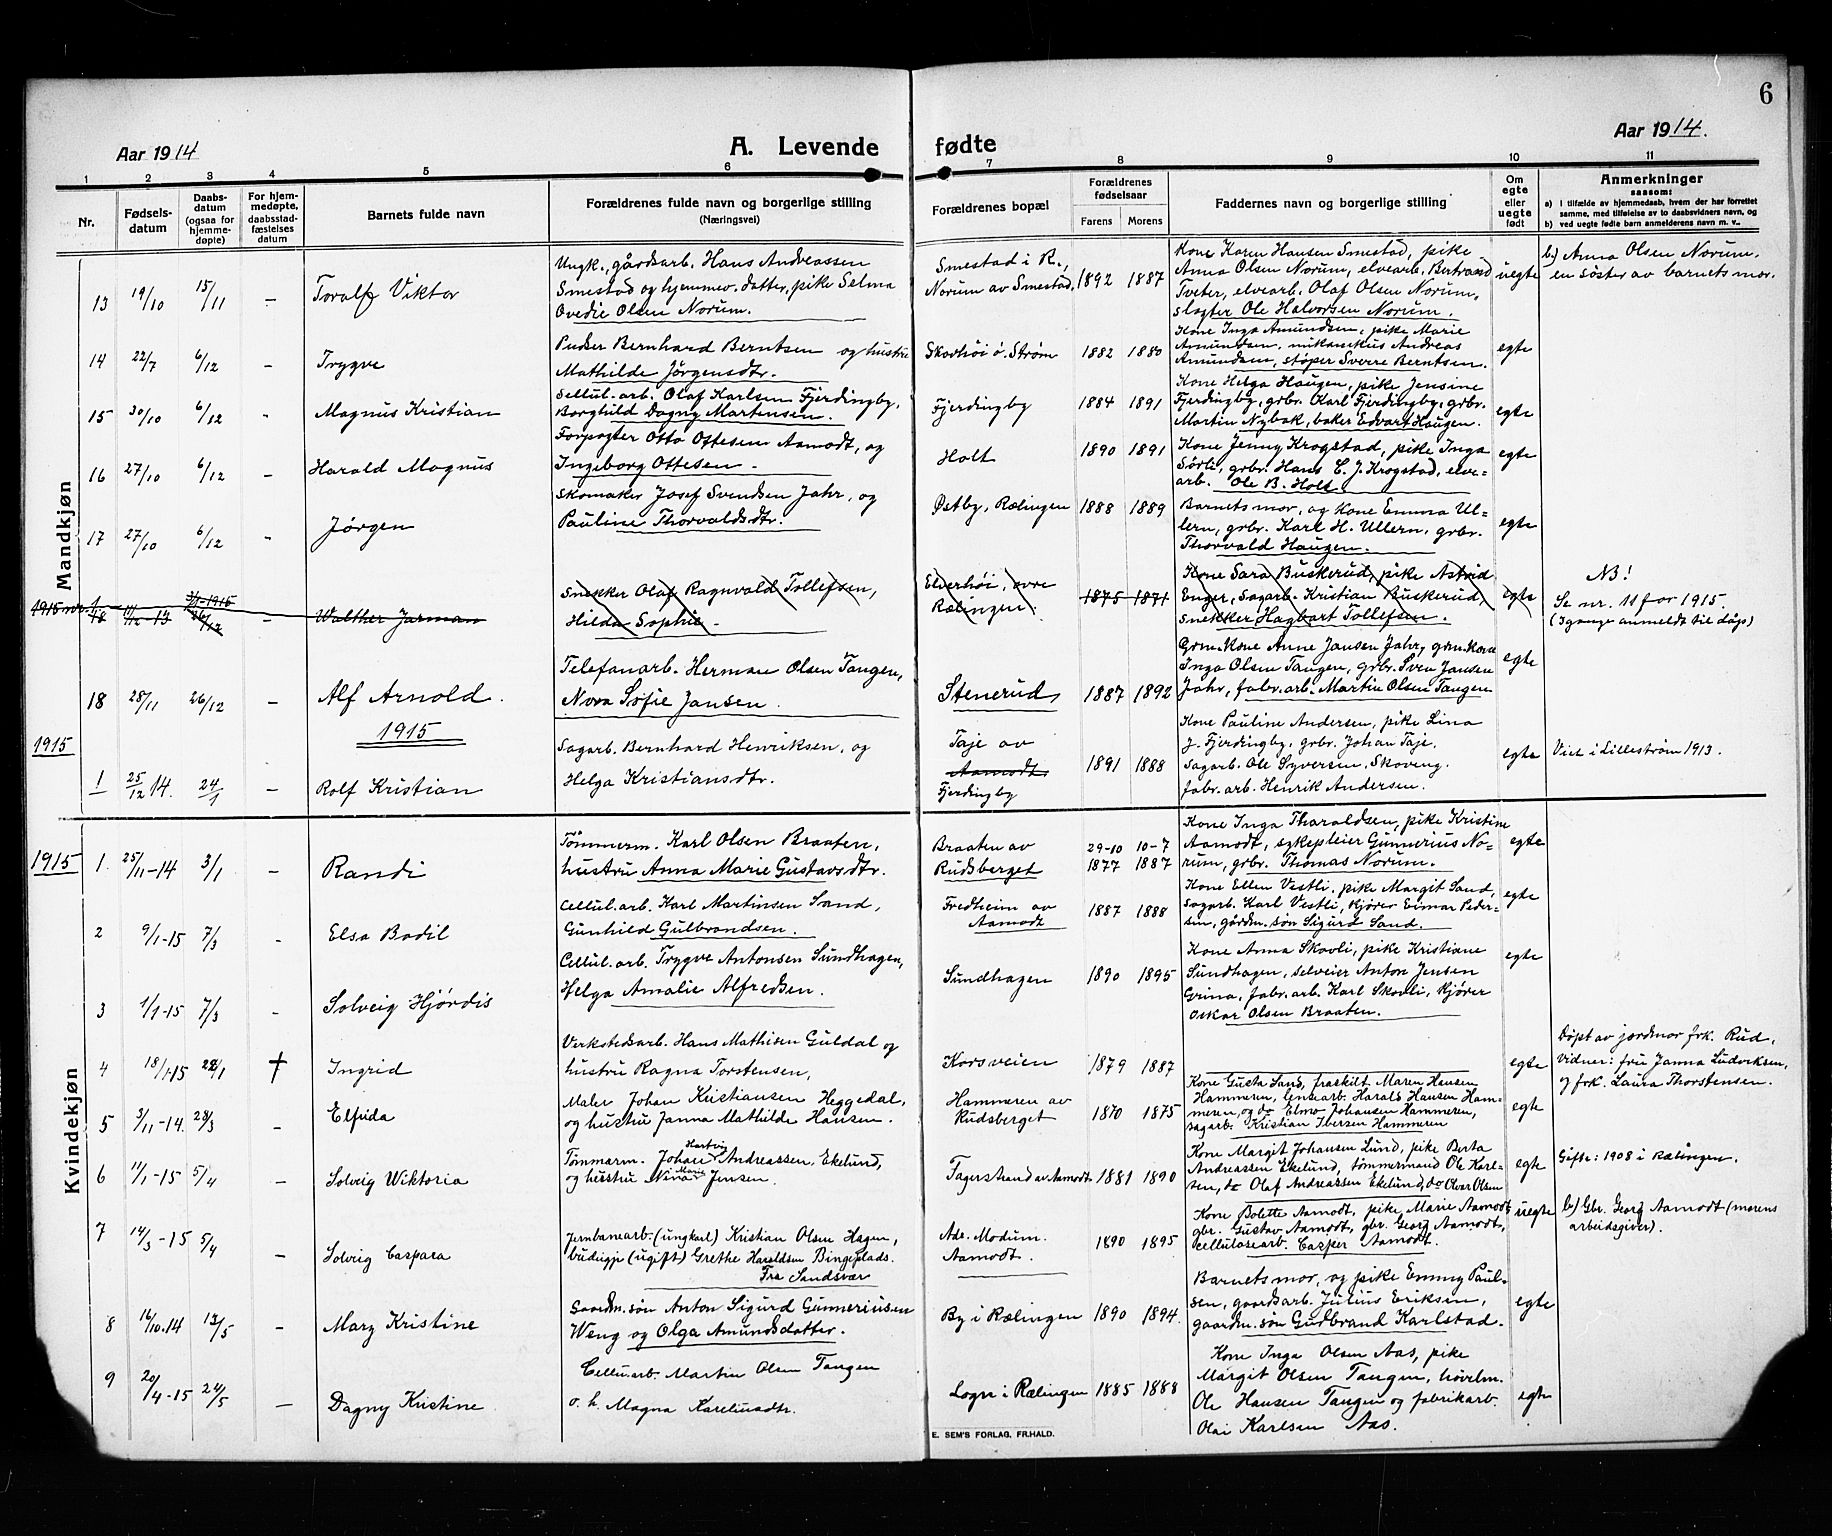 6
Aar 1914
A. Levende fødte
Aar 1914.
1 2 3 4 5 6 7 8 9 10 11
Nr.
Fødselsdatum
Daabsdatum (ogsaa for hjemmedøpte)
For hjemmedøpte, daabsstadfæstelses datum
Barnets fulde navn
Forældrenes fulde navn og borgerlige stilling
(Næringsvei)
Forældrenes bopæl
Forældrenes fødselsaar
Farens Morens
Faddernes navn og borgerlige stilling
Om egte eller uegte født
Anmerkninger
saasom:
a) I tilfælde av hjemmedaab, hvem der har forrettet
samme, med tilføielse av to daabsvidners navn, og
b) ved uegte fødte barn anmelderens navn m. v..
Mandkjøn
13 19/10 15/11 - Toralf Viktor
Ungk., gårdsarb. Hans Andreassen
Smestad og hjemmev. datter, pike Selma
Ovedie Olsen Norum.
Smestad i R.,
Norum av Smestad.
1892 1887
Kone Karen Hansen Smestad, pike
Anna Olsen Norum, elvearb. Bertrand
Tveter, elvearb. Olaf Olsen Norum,
slagter Ole Halvorsen Norum.
uegte
b.) Anna Olsen Norum,
en søster av barnets mor.
14 22/7 6/12 - Trygve
Pudser Bernhard Berntsen og hustru
Mathilde Jørgensdtr.
Skovhøi ø. Strøm
1882 1880
Kone Inga Amundsen, pike Marie
Amundsen, mekanikus Andreas
Amundsen, støper Sverre Berntsen.
egte
15 30/10 6/12 - Magnus Kristian
Sellul. arb. Olaf Karlsen Fjerdingby,
Borghild Dagny Martensen.
Fjerdingby
1884 1891
Kone Helga Haugen, pike Jensine
Fjerdingby, grbr. Karl Fjerdingby, grbr.
Martin Nybak, baker Edvart Haugen.
egte
16 27/10 6/12 - Harald Magnus
Forpagter Otto Ottesen Aamodt, og
Ingeborg Ottesen.
Holt
1890 1891
Kone Jenny Krogstad, pike Inga
Sørli, grbr. Hans C. J. Krogstad, elve-
arb. Ole B. Holt.
egte
17 27/10 6/12 - Jørgen
Skomaker Josef Svendsen Jahr, og
Pauline Thorvaldsdtr.
Østby, Rælingen
1888 1889
Barnets mor, og kone Emma Ul-
lern, grbr. Karl H. Ullern, grbr.
Thorvald Haugen.
egte
1915 nr. 1 18 11/12-13 3/1-1915 26/12 - Walther Jarman
Snekker Olaf Ragnvald Tollefsen,
Hilda Sophie.
Elverhøi, øvre
Rælingen.
1875 1871
Kone Sara Buskerud, pike Astrid
Enger, Sagarb. Kristian Buskerud,
Snekker Hagbart Tollefsen.
egte
NB!
Se nr. 11 for 1915.
(2 gange anmeldt til dåp)
18 28/11 26/12 - Alf Arnold.
Telefonarb. Herman Olsen Tangen,
Nora Sofie Jansen.
Stenerud
1887 1892
Grm. Kone Anne Jansen Jahr, grm. kone
Inga Olsen Tangen, grbr. Sven Jansen
Jahr, fabr. arb. Martin Olsen Tangen
egte
1915
1915
1 25/12 14. 24/1 - Rolf Kristian
Sagarb. Bernhard Henriksen, og
Helga Kristiansdtr.
Taje av
Aamodt.
Fjerdingby
1891 1888
Kone Pauline Andersen, pike Lina
J. Fjerdingby, grbr. Johan Taje.
Sagarb. Ole Syversen, Skoveng.
fabr. arb. Henrik Andersen.
egte
Viet i Lillestrøm 1913.
Kvindekjøn
1915
1. 25/11-14 3/1 - Randi
Tømmerm. Karl Olsen Braaten,
hustru Anna Marie Gustavsdtr.
Braaten av
Rudsberget
29-10 10-7
1877 1887
Kone Inga Tharaldsen, pike Kristine
Aamodt, sykepleier Gunnerius No-
rum, grbr. Thomas Norum.
egte
2 9/1-15 7/3 - Elsa Bodil
Cellul. arb. Karl Martinsen Sand,
Gunhild Gulbrandsen.
Fredheim av
Aamodt
1887 1888
Kone Ellen Vestli, pike Margit Sand,
Sagarb. Karl Vestli, kjører Eimar Peder-
sen, gårdm. søn Sigurd Sand.
egte
3 1/1-15 7/3 - Solveig Hjørdis
Cellul. arb. Trygve Antonsen Sundhagen,
Helga Amalie Alfredsen.
Sundhagen
1890 1895
Kone Anna Skovli, pike Kristiane
Sundhagen, selveier Anton Jensen
Grina, fabr. arb. Karl Skovli, kjører
Oskar Olsen Braaten.
egte
4 18/1-15 /1 † Ingrid
Verkstedsarb. Hans Mathisen Guldal og
hustru Ragna Torstensen,
Korsveien
1879 1887
egte
Døpt av jordmor frk. Rud,
Vidner: fru Janna Ludviksen,
og frk. Laura Thorstensen.
5 3/11-14. 28/3 - Elfrida
Maler Johan Kristiansen Heggedal,
og hustru Janna Mathilde Hansen.
Hammeren av
Rudsberget
1870 1875
Kone Gusta Sand, fraskilt Maren Hansen
Hammeren, lensearb. Harald Hansen Ham-
meren, og do Elmo Johansen Hammeren,
sagarb. Kristian Ibersen Hammeren
egte
6 11/1-15 5/4 - Solveig Wiktoria
Tømmerm. Johan Hartvig Andreassen, Ekelund,
og hustru Marie Jensen.
Fagerstrand av Aamodt
1881 1890
Kone Margit Johansen Lund, pike Berta
Andreassen Ekelund, tømmermand Ole Karl-
sen, do Olaf Andreassen Ekelund, do Olver Olsen
egte
Gifte: 1908 i Rælingen.
7 14/3-15 5/4 - Solveig Caspara
Jernbanearb. (ungkarl) Kristian Olsen Hagen,
budeigje (ugift) Grethe Haraldsen Bingeplads.
Fra Sandsvær
Adr. Modum.
Aamodt.
1890 1895
Kone Bolette Aamodt, pike Marie Aamodt
gbr. Gustav Aamodt, gbr. Georg Aamodt,
cellulosearb. Casper Aamodt.
uegte
b) Gbr. Georg Aamodt (morens
arbeidsgiver).
8 16/10.14 13/5 - Mary Kristine
Gaardm. søn Anton Sigurd Gunneriusen
Weng og Olga Amundsdatter.
By i Rælingen
1890 1894.
Barnets mor, og pike Emmy Paul-
sen, gaardsarb. Julius Eriksen,
gaardm. søn Gudbrand Karlstad.
egte
9 20/4-15 24/5 - Dagny Kristine
Cellu. arb. Martin Olsen Tangen
o. h. Magna Karelinsdtr.
Logn i Rælingen
1885 1888
Kone Inga Olsen Aas, pike
Margit Olsen Tangen, høvelm.
Ole Hansen Tangen og fabrikarb.
Olai Karlsen Aas.
egte
E. SEM'S FORLAG, FR.HALD.